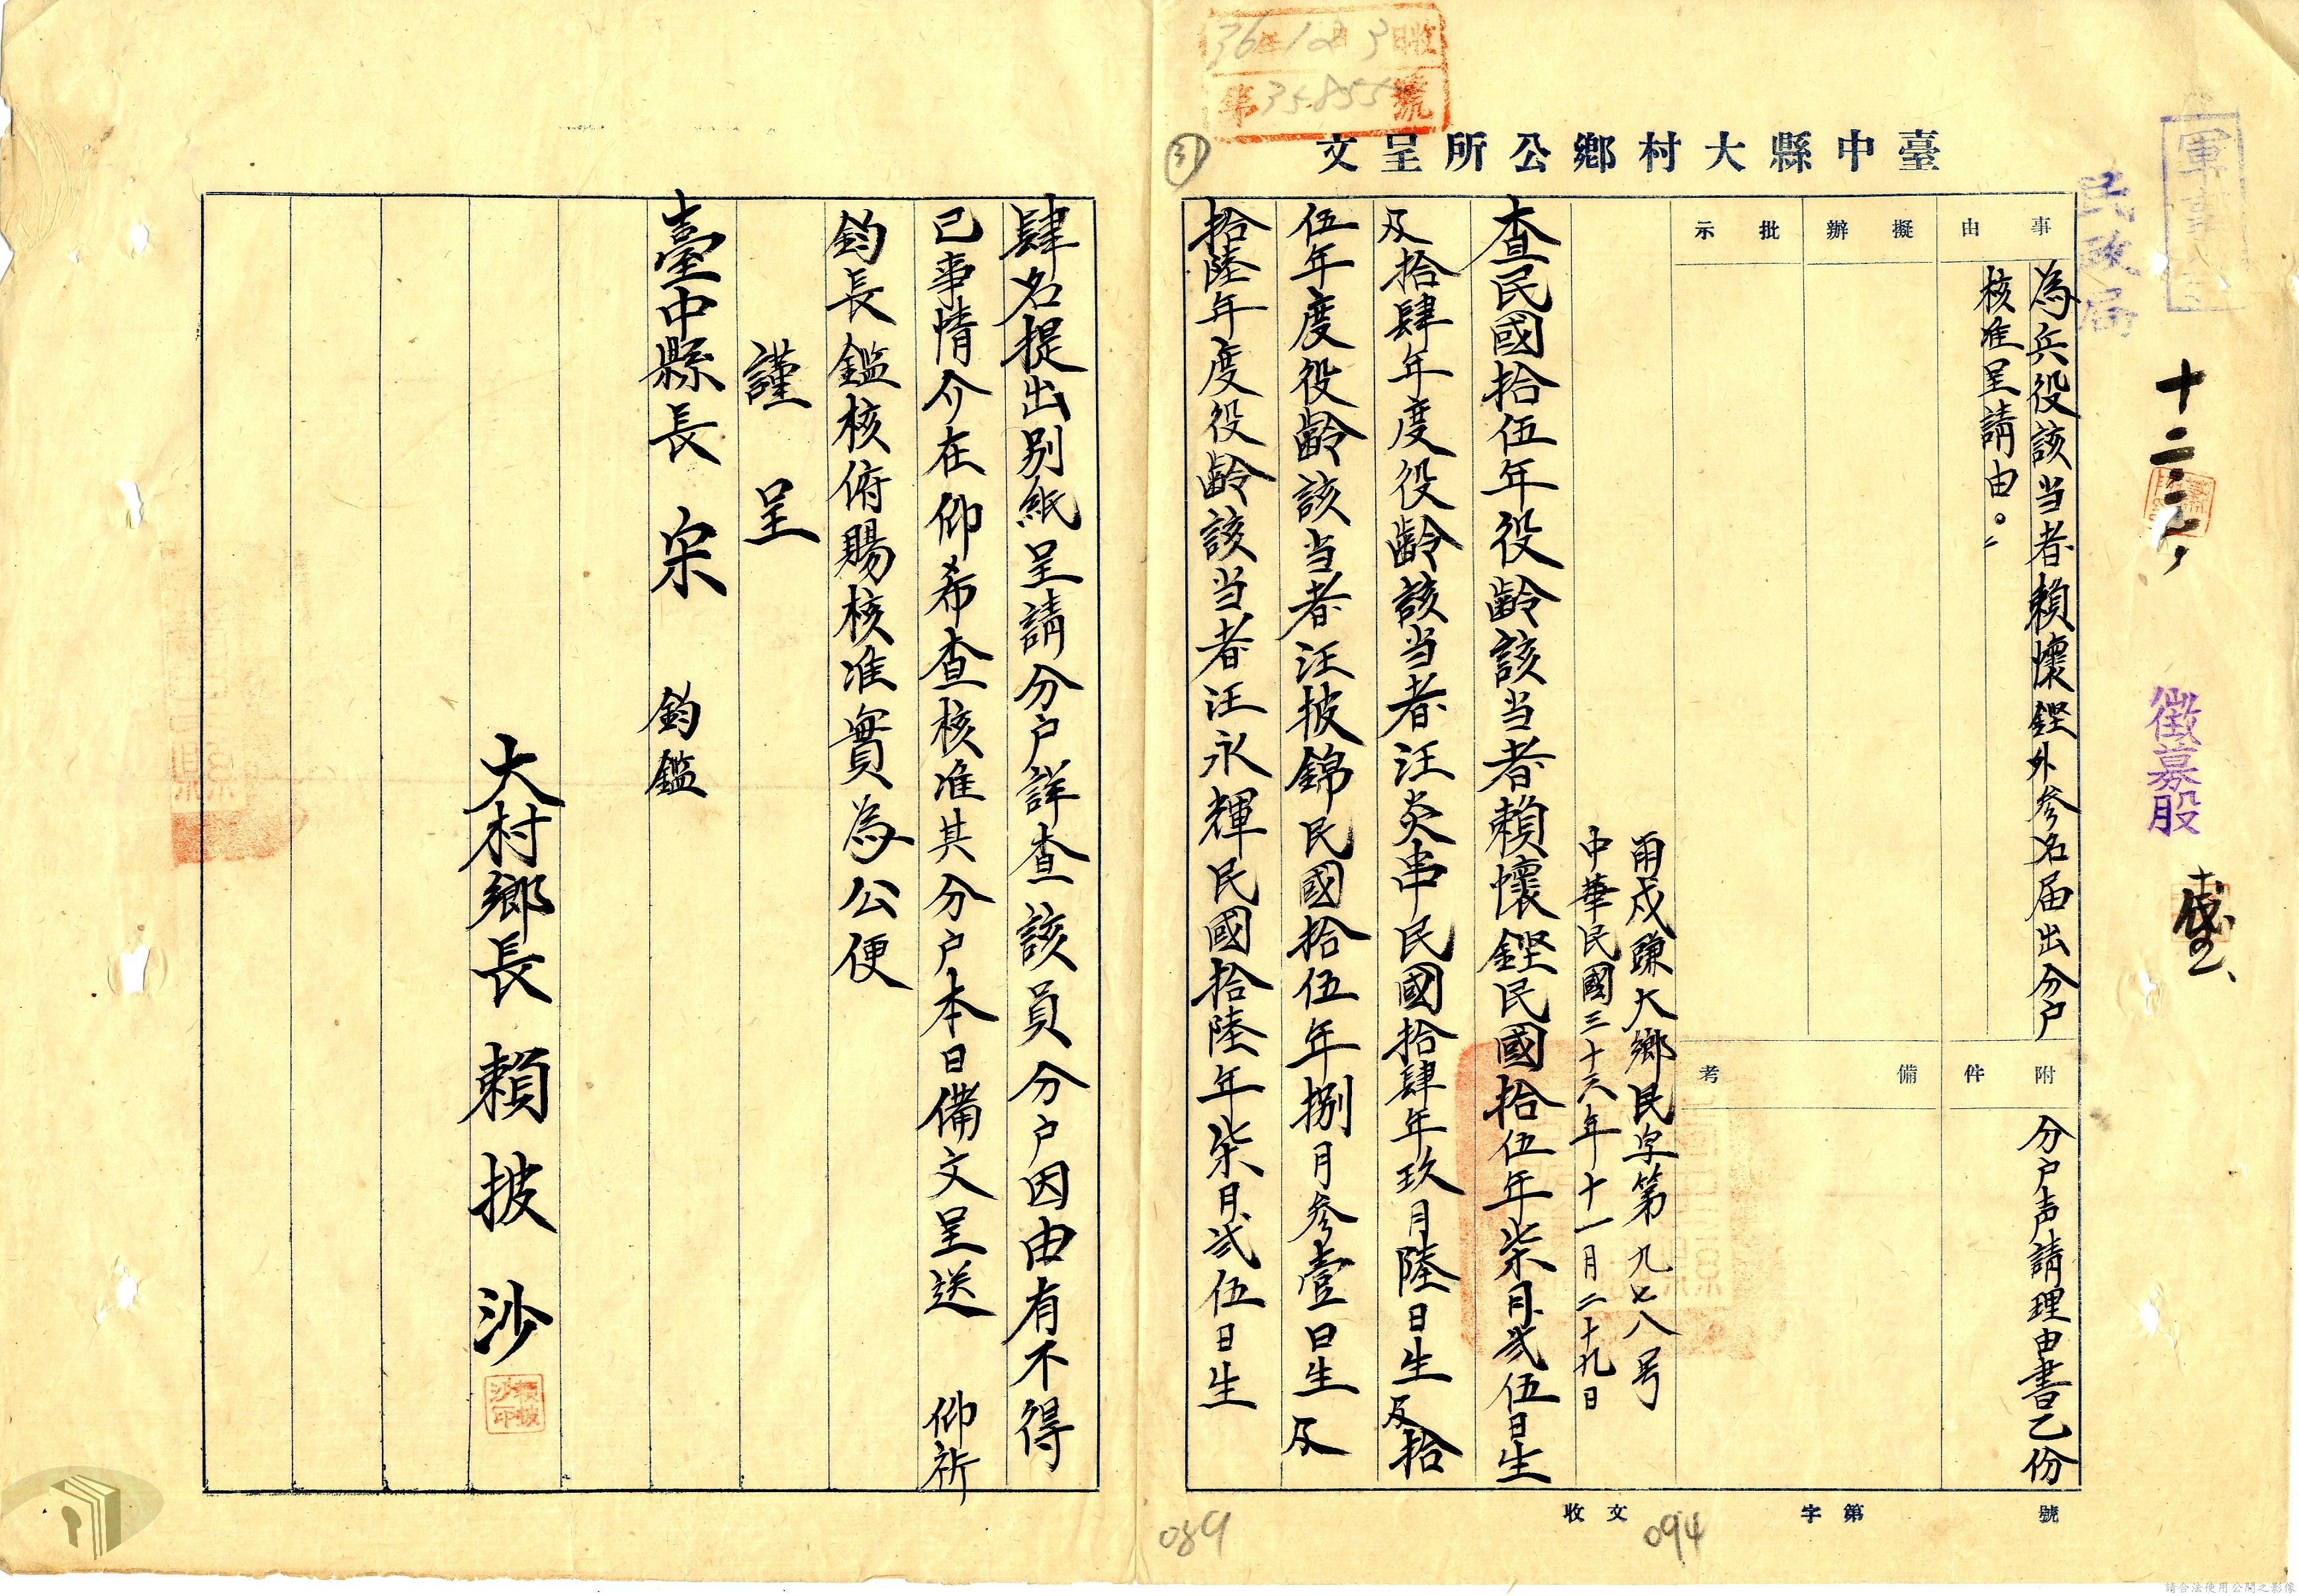 36年12月3日收
第35855號
臺中縣大村鄉公所呈文
軍事
民政局
十二、三、
徵募股
事由
為兵役該当者賴懷鏗外参名届出分户
核准呈請由。
擬辦
批示
附件
分户声請理由書乙份
備考
酉戍謙大鄉民字第九七八号
中華民國三十六年十一月二十九日
查民國拾伍年役齡該当者賴懷鏗民國拾伍年柒月弍伍日生
及拾肆年度役齡該当者汪炎串民國拾肆年玖月陸日生及拾
伍年度役齡該当者汪披錦民國拾伍年捌月参壹日生及
拾陸年度役齡該当者汪永輝民國拾陸年柒月弍伍日生
收文
字第
號
③
094
089
肆名提出别紙呈請分户詳查該員分户因由有不得
已事情介在仰希查核准其分户本日備文呈送 仰祈
鈞長鑑核俯賜核准實為公便
謹呈
臺中縣長宗 鈞鑑
大村鄉長賴披沙
賴披沙印
請合法使用公開之影像